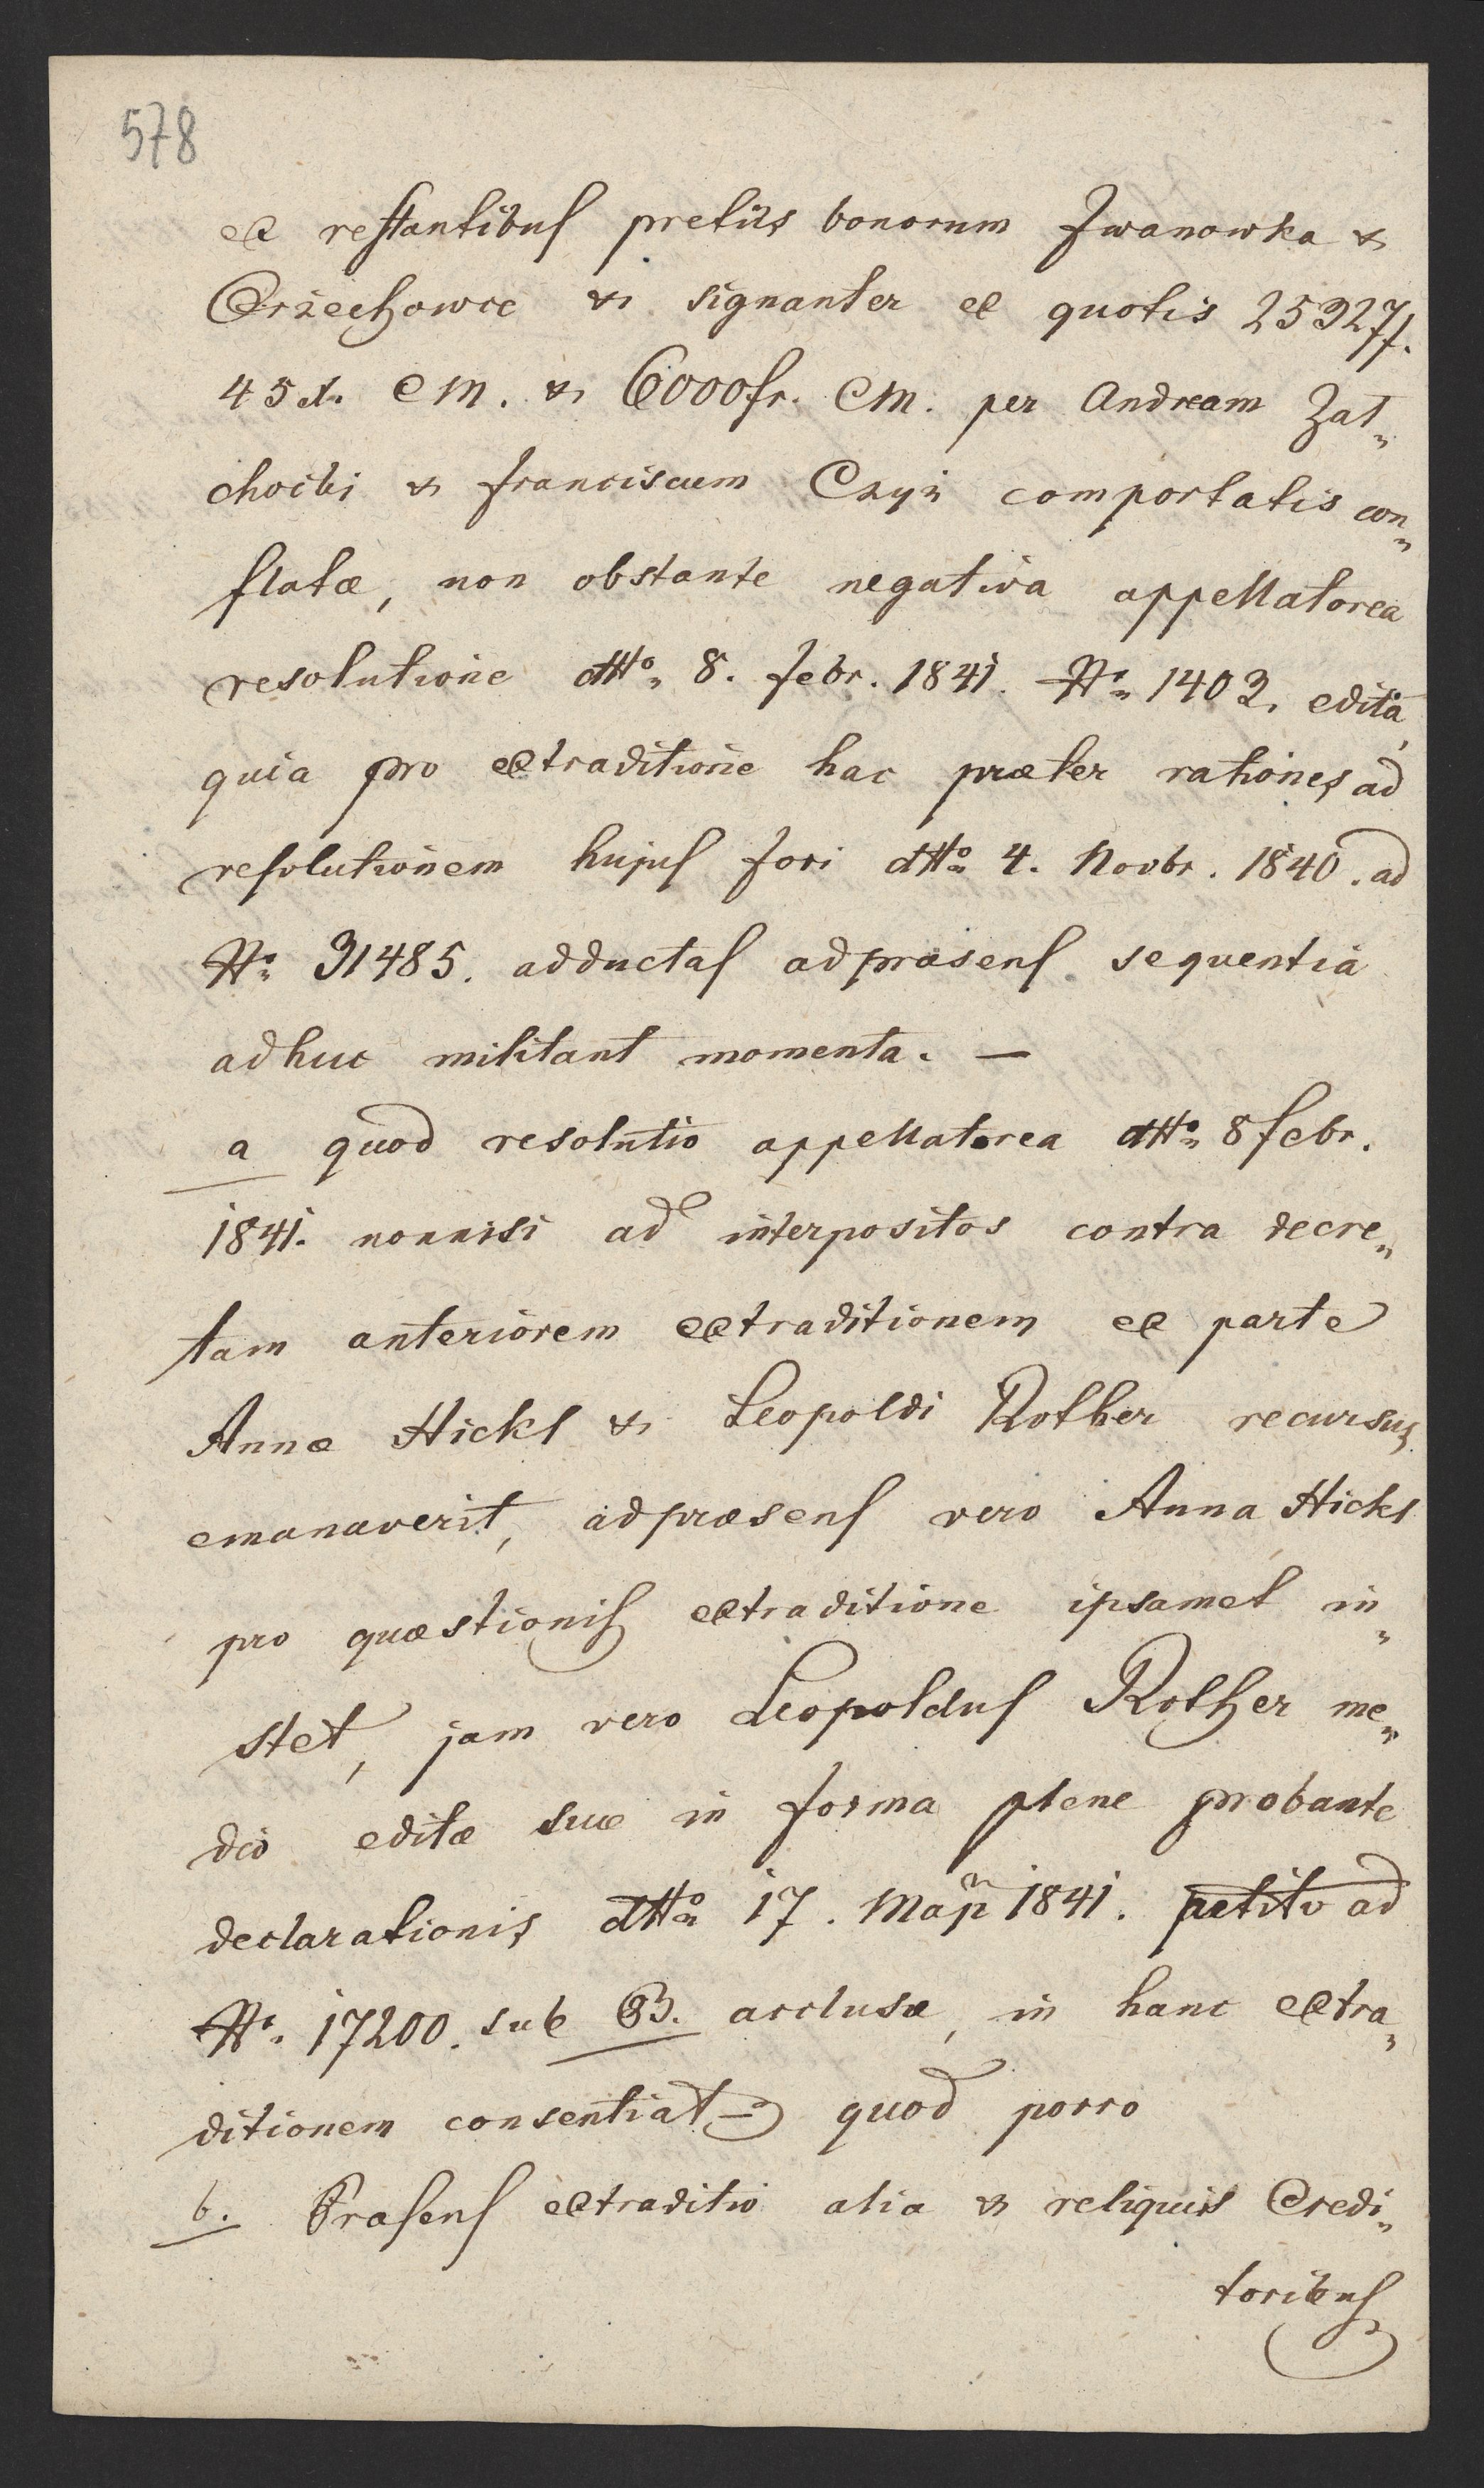 578
ex restantibus pretiis bonorum Iwanowka &
Orzechowce & signanter ex quotis 25927 f.
45 x. CM. & 6000 fr. CM. per Andream Zat„
chocki & Franciscum Czyz comportatis con„
flatæ, non obstante negativa appellatorea
resolutione dtto 8. Febr. 1841. No 1402. edita,
quia pro extraditione hac præter rationes ad
resolutionem hujus Fori dtto 4. Novbr. 1840. ad
No 31485. adductas adpræsens sequentia
adhuc militant momenta. —
a quod resolutio appellatorea dtto 8 Febr.
1841. nonnisi ad interpositos contra decre„
tam anteriorem extraditionem ex parte
Annæ Hickl & Leopoldi Rother recursus
emanaverit, adpræsens vero Anna Hickl
pro quæstionis extraditione ipsamet in„
stet, jam vero Leopoldus Rother me„
dio editæ suæ in forma plene probante
declarationis dtto 17. Maji 1841. petito ad
No. 17200. sub B. acclusæ, in hanc extra„
ditionem consentiat — quod porro
b. Præsens extraditio alia & reliquis Credi„
toribus